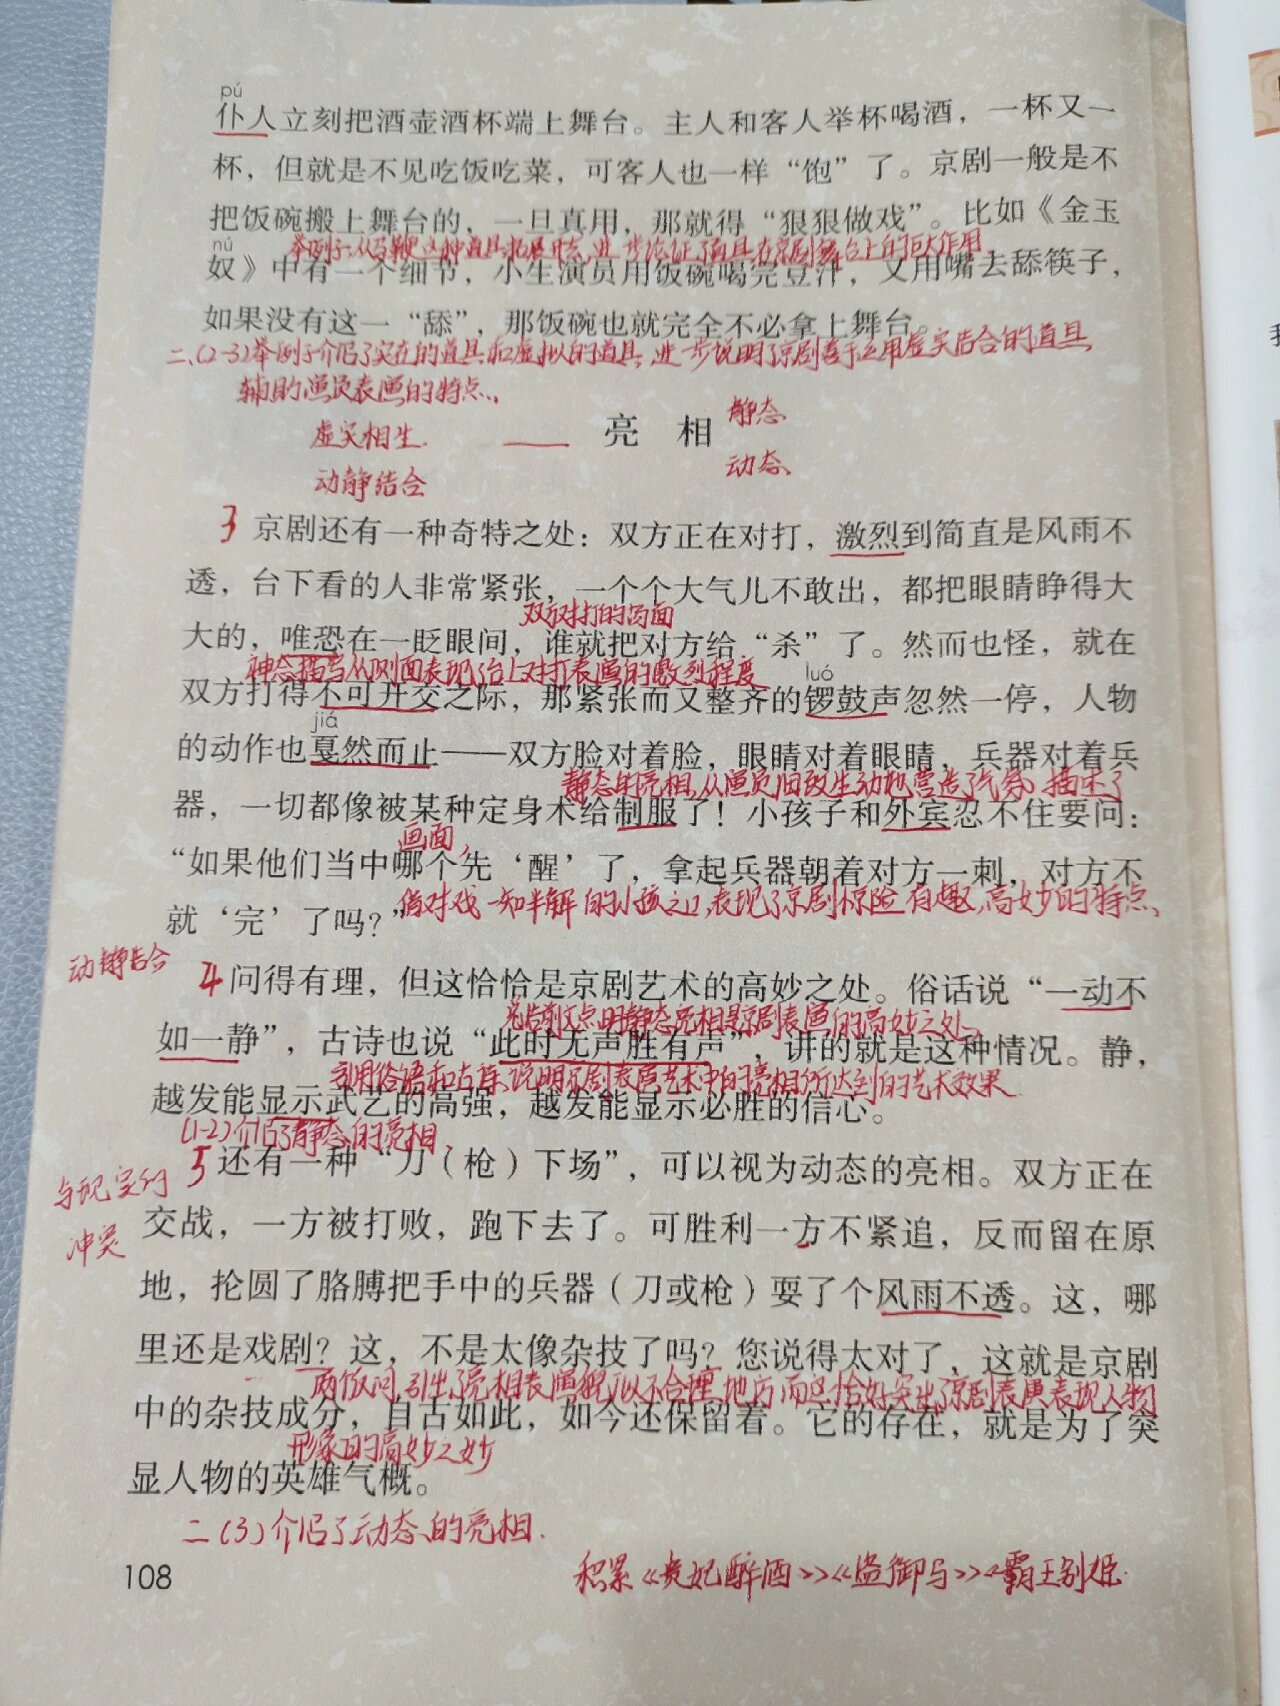 pú
仆人立刻把酒壶酒杯端上舞台。主人和客人举杯喝酒，一杯又一
杯，但就是不见吃饭吃菜，可客人也一样“饱”了。京剧一般是不
把饭碗搬上舞台的，一旦真用，那就得“狠狠做戏”。比如《金玉
举例子,从马鞭这种道具拓展开去,进一步论证了道具在京剧舞台上的巨大作用
nú
奴》中有一个细节，小生演员用饭碗喝完豆汁，又用嘴去舔筷子，
如果没有这一“舔”，那饭碗也就完全不必拿上舞台。
二、(2-3)举例子介绍了实在的道具和虚拟的道具,进一步说明了京剧善于运用虚实结合的道具
辅助演员表演的特点、
静态
虚实相生. 亮 相
动静结合 动态
3 京剧还有一种奇特之处：双方正在对打，激烈到简直是风雨不
透，台下看的人非常紧张，一个个大气儿不敢出，都把眼睛睁得大
双方对打的场面
大的，唯恐在一眨眼间，谁就把对方给“杀”了。然而也怪，就在
神态描写从侧面表现了台上对打表演的激烈程度
luó
双方打得不可开交之际，那紧张而又整齐的锣鼓声忽然一停，人物
jiá
的动作也戛然而止——双方脸对着脸，眼睛对着眼睛，兵器对着兵
静态的亮相,从演员 生动地营造了气氛、描述了
器，一切都像被某种定身术给制服了！小孩子和外宾忍不住要问：
画面,
“如果他们当中哪个先‘醒’了，拿起兵器朝着对方一刺，对方不
借对戏一知半解的小孩之口,表现了京剧惊险有趣,高妙的特点、
就‘完’了吗？”
动静结合
4 问得有理，但这恰恰是京剧艺术的高妙之处。俗话说“一动不
点明静态亮相是京剧表演的高妙之处、
如一静”，古诗也说“此时无声胜有声”，讲的就是这种情况。静，
引用俗语和古诗、说明京剧表演艺术中的亮相所达到的艺术效果
越发能显示武艺的高强，越发能显示必胜的信心。
(1-2)介绍了静态的亮相
5 还有一种“刀（枪）下场”，可以视为动态的亮相。双方正在
与现实的
交战，一方被打败，跑下去了。可胜利一方不紧追，反而留在原
冲突
地，抡圆了胳膊把手中的兵器（刀或枪）耍了个风雨不透。这，哪
里还是戏剧？这，不是太像杂技了吗？您说得太对了，这就是京剧
两个反问,引出了亮相表演貌似不合理地方,而这恰好突出京剧表演表现人物
中的杂技成分，自古如此，如今还保留着。它的存在，就是为了突
形象上的高妙之妙
显人物的英雄气概。
二(3)介绍了动态的亮相.
108
积累《贵妃醉酒》《盗御马》《霸王别姬